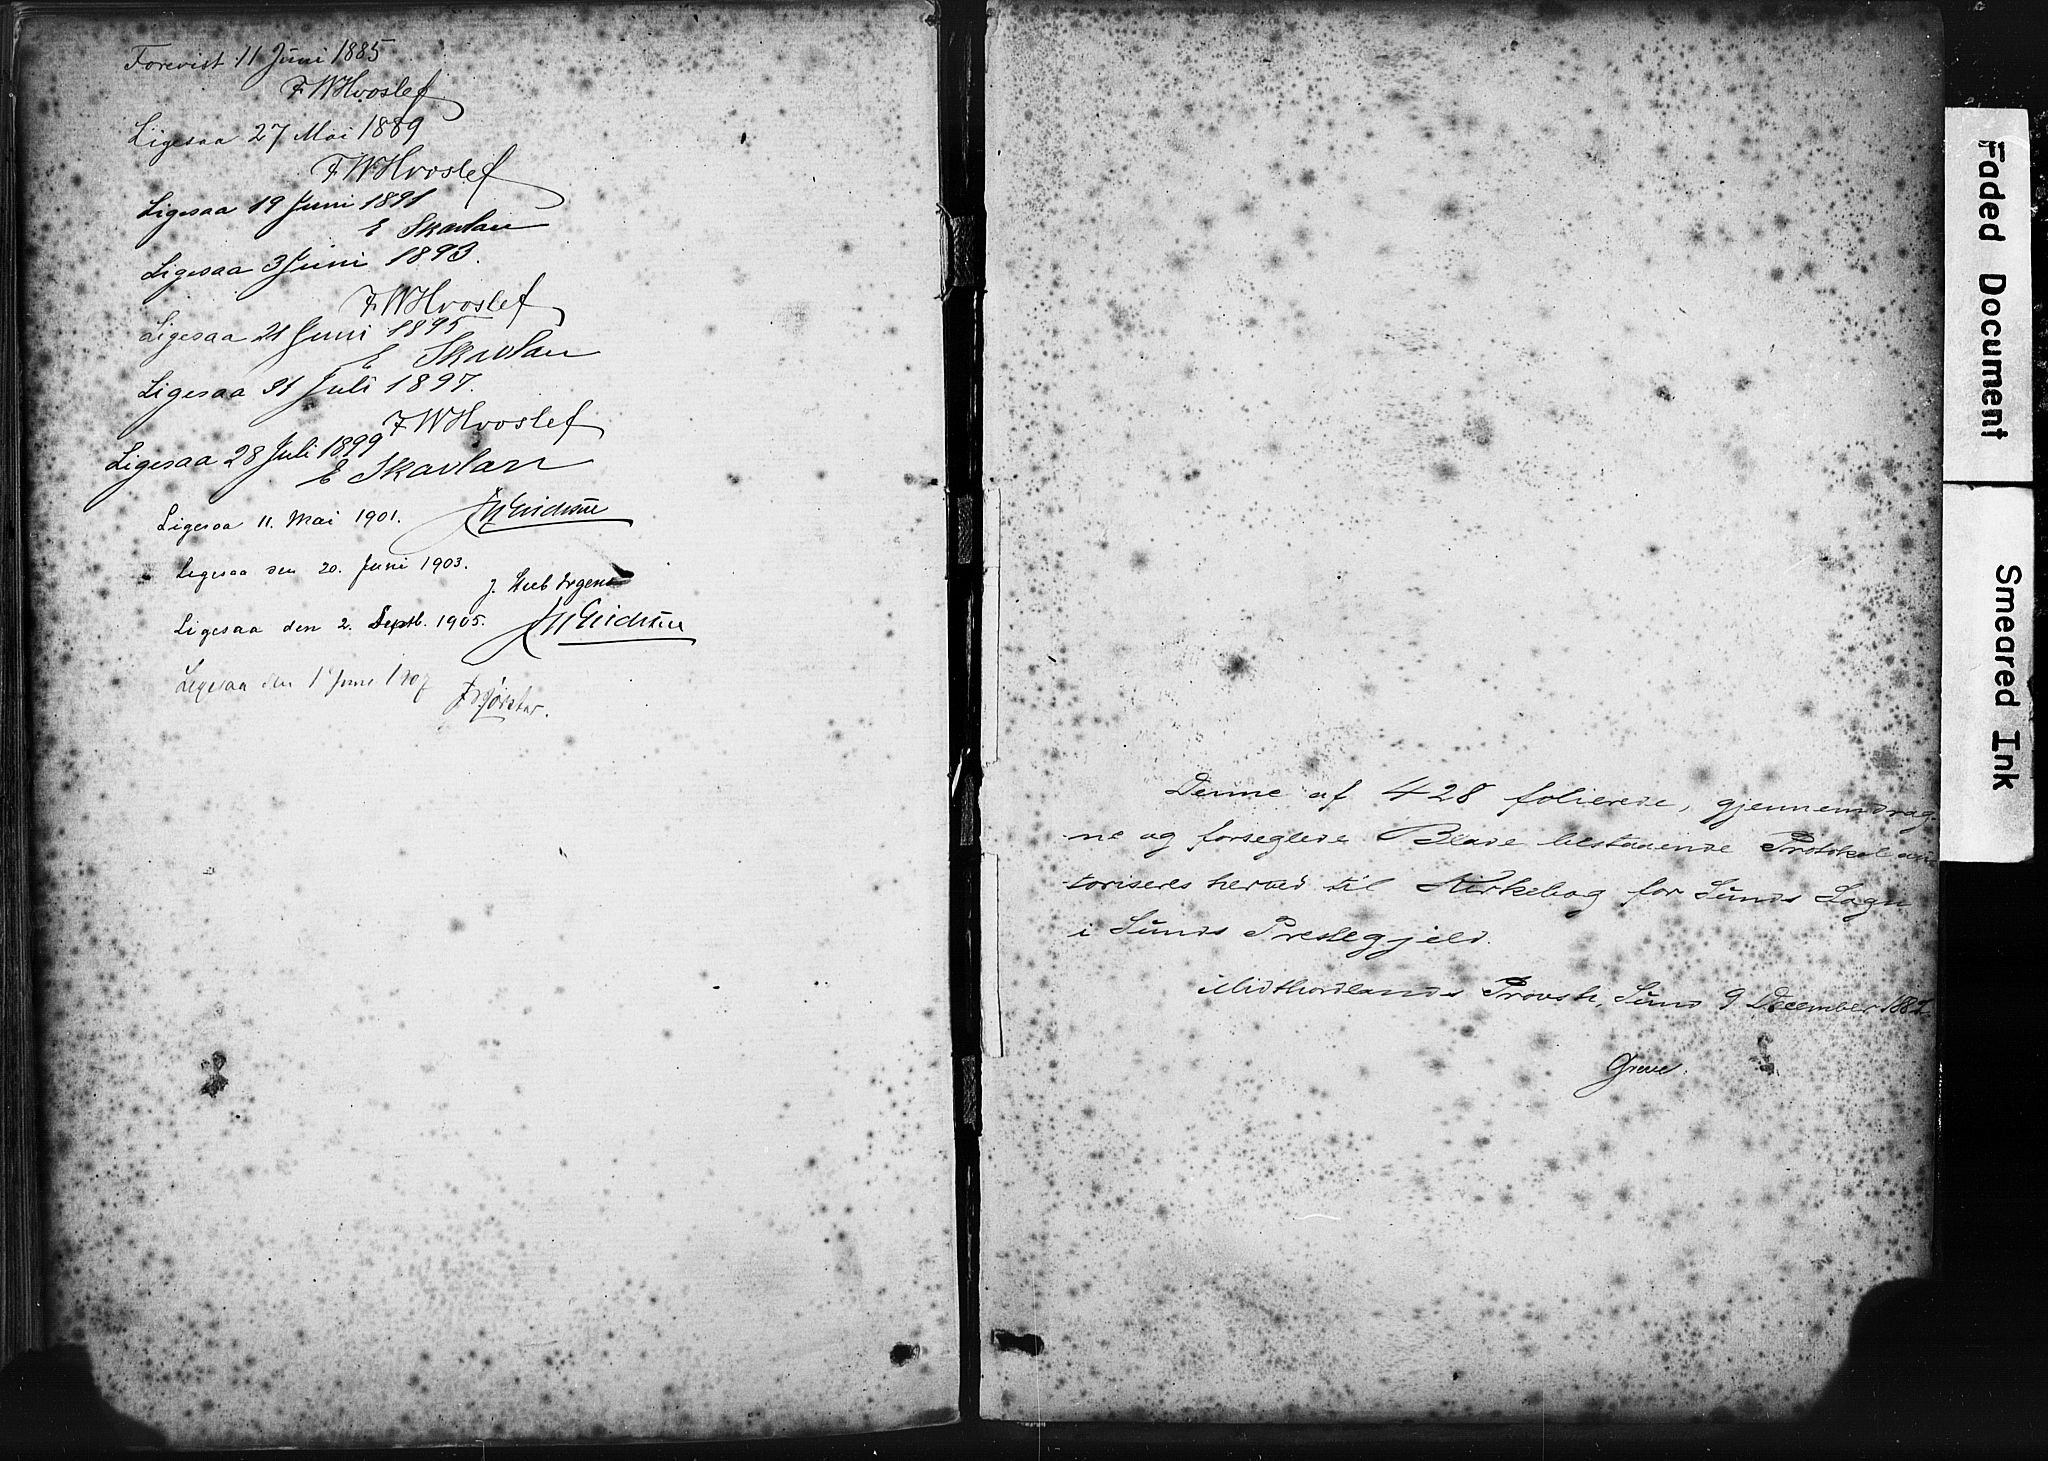 Forevist 11 Juni 1885
F W Hvoslef
Ligesaa 27 Mai 1889
F W Hvoslef
Ligesaa 19 Juni 1891
E Skavlan
Ligesaa 3 Juni 1893.
F W Hvoslef
Ligesaa 21 Juni 1895
E Skavlan
Ligesaa 21 Juli 1897.
F W Hvoslef
Ligesaa 28 Juli 1899
E Skavlan
Ligesaa 11. Mai 1901.
Ligesaa den 20. Juni 1903.
Ligesaa den 2. Septb. 1905.
Ligesaa den 1 Juni 1907
Denne af 428 folierede, gjennemdrag
ne og forseglede Blade bestaaende Protokol au
toriseres herved til Kirkebog for Sunds Sogn
i Sunds Prestegjeld.
Midthordlands Provsti, Sund 9 December 188
Greve.
Faded Document
Smeared Ink